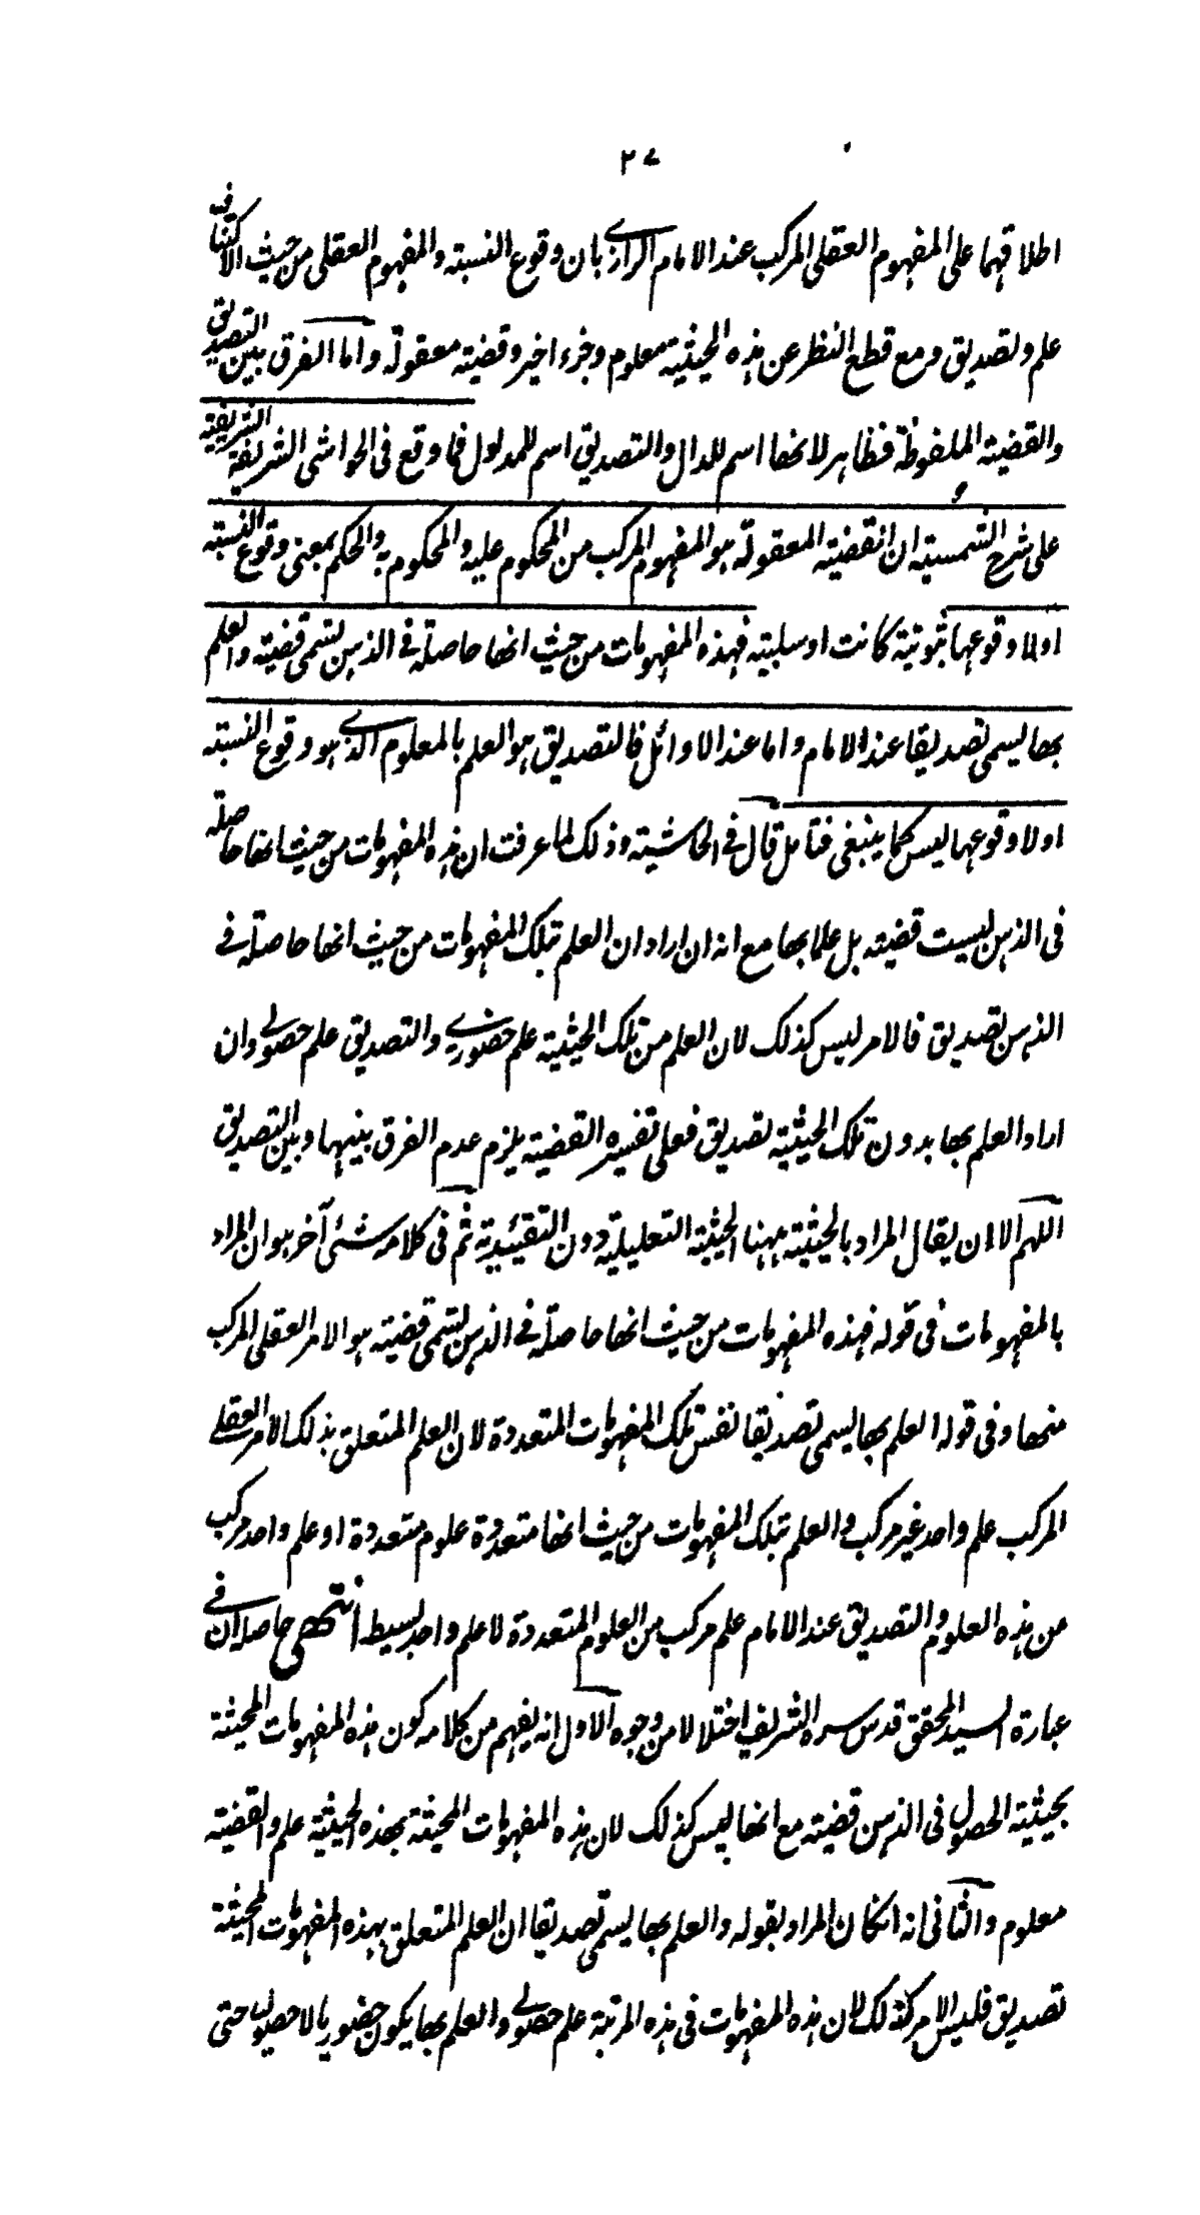 ٢٧
اطلاقهما على المفهوم العقلى المركب عند الامام الرازے بان وقوع النسبته والمفهوم العقلى من حيث الاكتناف
علم وتصديق ومع قطع النظر عن هذه الحيثية معلوم وجزء اخير وقضيته معقولة واما الفرق بين التصديق
والقضيته الملفوظة فظاهر لانها اسم للدال والتصديق اسم للمدلول فما وقع فى الحواشى الشريفة الشريفية
على شرح الشمسيته ان القضيته المعقولة هو المفهوم المركب من المحكوم عليه والمحكوم به والحكم بمعنى وقوع النسبته
اولا وقوعها ثبوتية كانت اوسلبيته فهذه المفهومات من حيث انها حاصلة فے الذهن تسمى قضيته والعلم
بها يسمى تصديقا عند الامام واما عند الاوائل فالتصديق هو العلم بالمعلوم الذے هو وقوع النسبته
اولا وقوعها ليس كما ينبغى فتامل قال فے الحاشيته وذلك لما عرفت ان هذه المفهومات من حيث انها حاصلة
فى الذهن ليست قضيته بل علما بها مع انه ان اراد ان العلم بتلك المفهومات من حيث انها حاصلة فے
الذهن تصديق فالامر ليس كذلك لان العلم من تلك الحيثية علم حضورے والتصديق علم حصولے وان
اراد العلم بها بدون تلك الحيثية تصديق فعلى تفسيره القضيته يلزم عدم الفرق بينهما وبين التصديق
اللهم الا ان يقال المراد بالحيثية ههنا الحيثية التعليلية دون التقئيدية ثم فى كلامه شئ آخر هو ان المراد
بالمفهومات فى قوله فهذه المفهومات من حيث انها حاصلة فے الذهن تسمى قضيته هو الامر العقلى المركب
منها وفى قوله العلم بها يسمى تصديقا نفس تلك المفهومات المتعددة لان العلم المتعلق بذلك الامر العقلے
المركب علم واحد غير مركب والعلم بتلك المفهومات من حيث انها متعددة علوم متعددة او علم واحد مركب
من هذه العلوم والتصديق عند الامام علم مركب من العلوم المتعددة لا علم واحد بسيط انتهى حاصله ان فے
عبارة السيد المحقق قدس سره الشريف اختلالا من وجوه الاول انه يفهم من كلامه كون هذه المفهومات المحيثة
بحيثية الحصول فى الذهن قضيته مع انها ليس كذلك لان هذه المفهومات المحيثة بهذه الحيثية علم والقضيته
معلوم والثانى انه انكان المراد بقوله والعلم بها يسمى تصديقا ان العلم المتعلق بهذه المفهومات المحيثة
تصديق فليس الامر كذلك لان هذه المفهومات فى هذه المرتبة علم حصولے والعلم بها يكون حضوريا لا حصوليا حتى